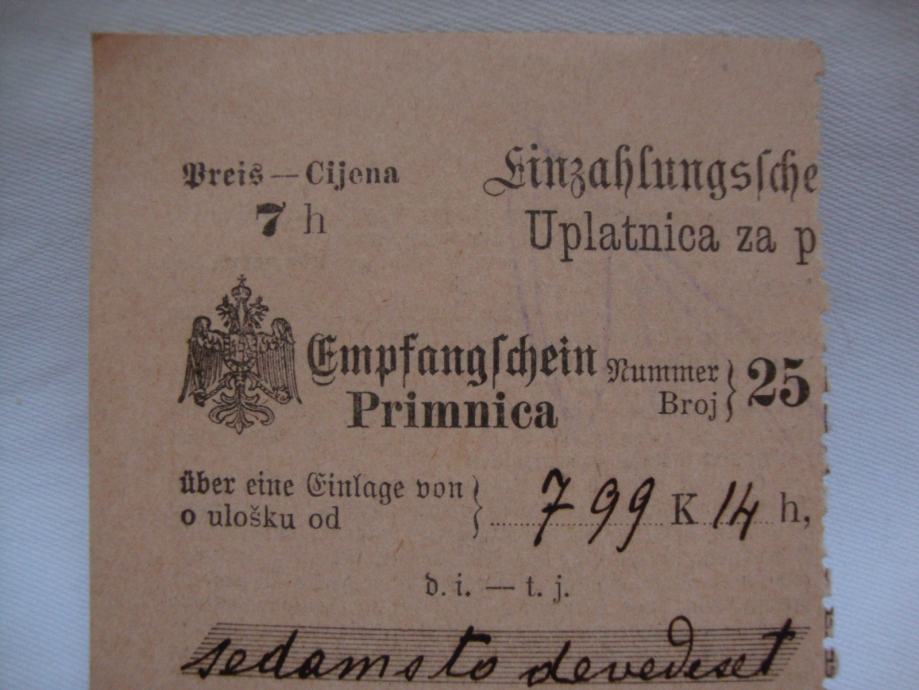 Preis — Cijena
7 h
Einzahlungssche
Uplatnica za p
Empfangschein
Primnica
Nummer
Broj } 25
über eine Einlage von
o ulošku od } 799 K 14 h,
d. i. — t. j.
sedamsto devedeset